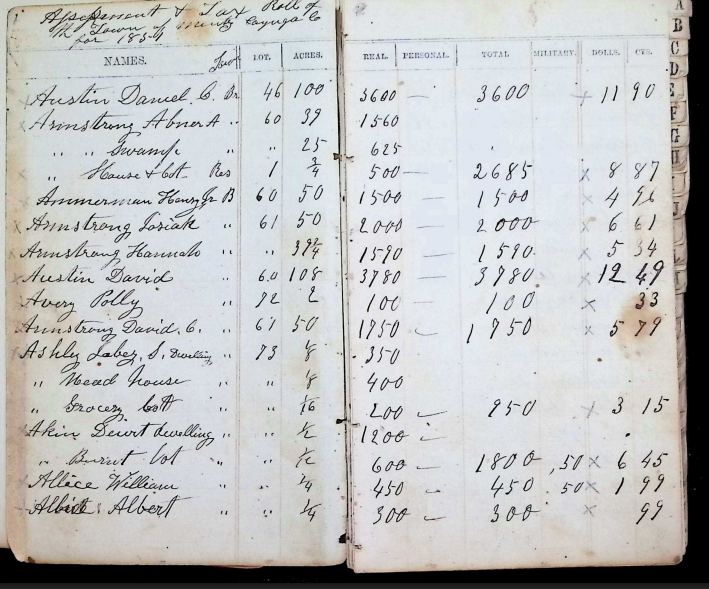 Assessment & Tax Roll of
the Town of Mentz Cayuga Co
for 1854
NAMES. LOT. ACRES. REAL. PERSONAL. TOTAL MILITARY. DOLLS. CTS.
Austin Daniel C. Br 46 100 3600 — 3600 × 11 90
Armstrong Abner A " 60 39 1560
" " Swamp " " 25 625
" House & lot Res 1 3/4 500 — 2685 × 8 87
Ammerman Henry Jr B 60 50 1500 — 1500 × 4 96
Armstrong Josiah " 61 50 2000 — 2000 × 6 61
Armstrong Hannah " " 39 3/4 1590 — 1590 × 5 34
Austin David " 60 108 3780 — 3780 × 12 49
Avery Polly " 72 2 100 — 100 × 33
Armstrong David C. " 61 50 1750 — 1750 × 5 79
Ashley Jabez S. Dwelling " 73 1/8 350
" Mead house " " 1/8 400
" Grocery lott " " 1/16 200 — 950 × 3 15
Akin dwelling " " 1/2 1200 —
" Burnt lot " " 600 — 1800 ,50 × 6 45
William " " 1/4 450 — 450 50 × 1 99
Albert " " 1/4 300 — 300 × 99
A
B
C
D
E
F
G